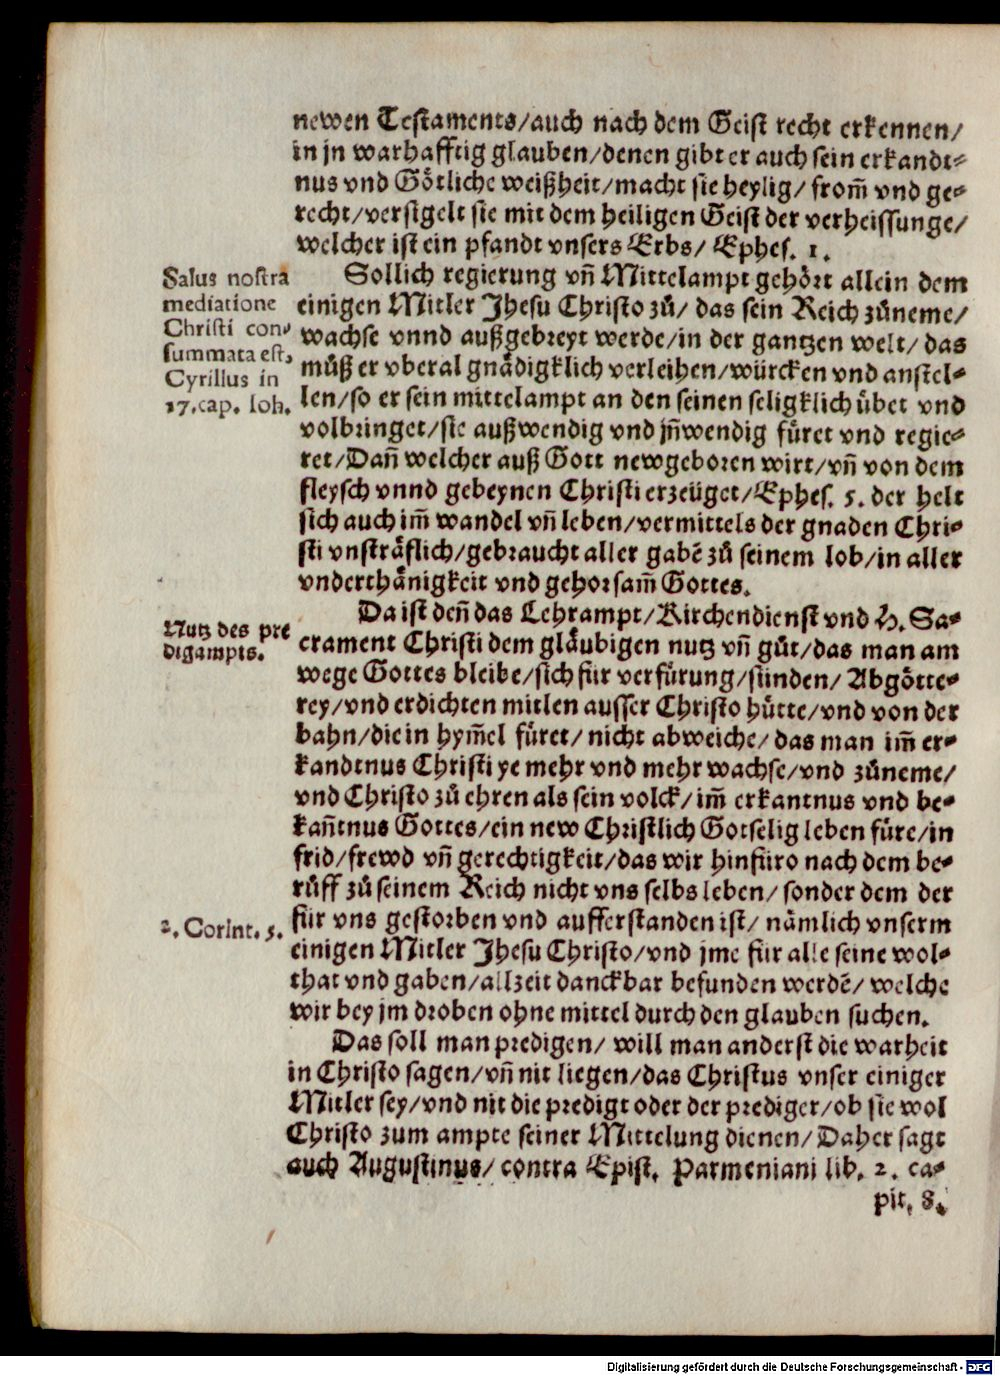 newen Testaments/auch nach dem Geist recht erkennen/
in jn warhafftig glauben/denen gibt er auch sein erkandt⸗
nus vnd Götliche weißheit/macht sie heylig/ from̃ vnd ge⸗
recht/versigelt sie mit dem heiligen Geist der verheissunge/
welcher ist ein pfandt vnsers Erbs/ Ephes. 1.
Salus nostra
mediatione
Christi con⸗
summata est,
Cyrillus in
17.cap. Ioh.
Sollich regierung vñ Mittelampt gehört allein dem
einigen Mitler Jhesu Christo zů/ das sein Reich zůneme/
wachse vnnd außgebreyt werde/in der gantzen welt/ das
můß er vberal gnädigklich verleihen/würcken vnd anstel⸗
len/so er sein mittelampt an den seinen seligklich übet vnd
volbringet/sie außwendig vnd jñwendig füret vnd regie⸗
ret/Dañ welcher auß Gott newgeboren wirt/vñ von dem
fleysch vnnd gebeynen Christi erzeüget/Ephes. 5. der helt
sich auch im̃ wandel vñ leben/vermittels der gnaden Chri⸗
sti vnsträflich/gebraucht aller gabẽ zů seinem lob/in aller
vnderthänigkeit vnd gehorsam̃ Gottes.
Nutz des pre
digampts.
Da ist deñ das Lehrampt/Kirchendienst vnd H. Sa⸗
crament Christi dem gläubigen nutz vñ gůt/das man am
wege Gottes bleibe/sich für verfürung/sünden/ Abgötte⸗
rey/vnd erdichten mitlen ausser Christo hütte/vnd von der
bahn/die in hym̃el füret/ nicht abweiche/das man im̃ er⸗
kandtnus Christi ye mehr vnd mehr wachse/vnd zůneme/
vnd Christo zů ehren als sein volck/im̃ erkantnus vnd be⸗
kañtnus Gottes/ein new Christlich Gotselig leben füre/in
frid/frewd vñ gerechtigkeit/das wir hinfüro nach dem be⸗
růff zů seinem Reich nicht vns selbs leben/ sonder dem der
2. Corint. 5.
für vns gestorben vnd aufferstanden ist/ nämlich vnserm
einigen Mitler Jhesu Christo/vnd jme für alle seine wol⸗
that vnd gaben/allzeit danckbar befunden werdẽ/ welche
wir bey jm droben ohne mittel durch den glauben suchen.
Das soll man predigen/ will man anderst die warheit
in Christo sagen/vñ nit liegen/das Christus vnser einiger
Mitler sey/vnd nit die predigt oder der prediger/ob sie wol
Christo zum ampte seiner Mittelung dienen/Daher sagt
auch Augustinus/ contra Epist. Parmeniani lib. 2. ca⸗
pit. 8.
Digitalisierung gefördert durch die Deutsche Forschungsgemeinschaft - DFG